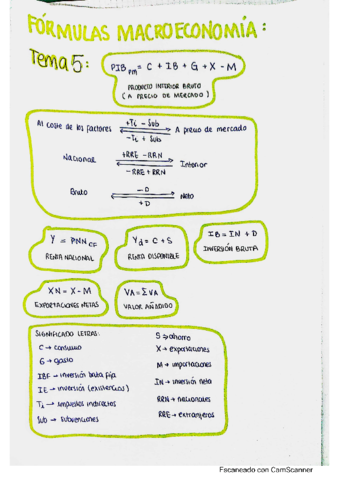 FÓRMULAS MACROECONOMÍA:
Tema 5:
PIBpm = C + IB + G + X - M
PRODUCTO INTERIOR BRUTO
(A PRECIO DE MERCADO)
Al coste de los factores +Ti - Sub A precio de mercado
-Ti + Sub
Nacional +RRE -RRN Interior
-RRE + RRN
Bruto -D Neto
+D
Y = PNNCF
RENTA NACIONAL
Yd = C + S
RENTA DISPONIBLE
IB = IN + D
INVERSIÓN BRUTA
XN = X - M
EXPORTACIONES NETAS
VA = ΣVA
VALOR AÑADIDO
SIGNIFICADO LETRAS:
C → consumo
G → gasto
IBF → inversión bruta fija
IE → inversión (existencias)
Ti → impuestos indirectos
Sub → subvenciones
S → ahorro
X → exportaciones
M → importaciones
IN → inversión neta
RRN → nacionales
RRE → extranjeros
Escaneado con CamScanner